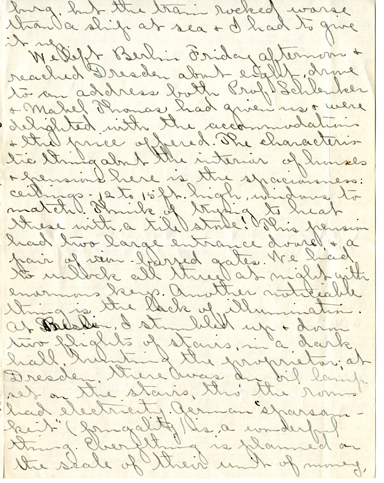 burg, but the train rocked worse
than a ship at sea & I had to give
it up.
We left Berlin Friday afternoon &
reached Dresden about eight, drove
to an address both Prof. Schlenker
& Mabel Thomas had given us & were
delighted with the accommodation
& the price offered. The characteris-
tic thing about the interior of houses
& pensions here is the spaciousness:
ceilings 12 to 15 ft. high, windows to
match. Think of trying to heat
these with a tile stove! This pension
had two large entrance doors, & a
pair of iron-barred gates. We had
to unlock all three at night with
enormous keys. Another noticeable
thing is the lack of illumination.
At , I stumbled up & down
two flights of stairs, in a dark
hall hunting the proprietor; at
Dresden, there was an oil lamp
set on the stairs, tho' the rooms
had electricity. German "sparsam-
keit" (frugality) is a wonderful
thing. Everything is planned on
the scale of their unit of money,